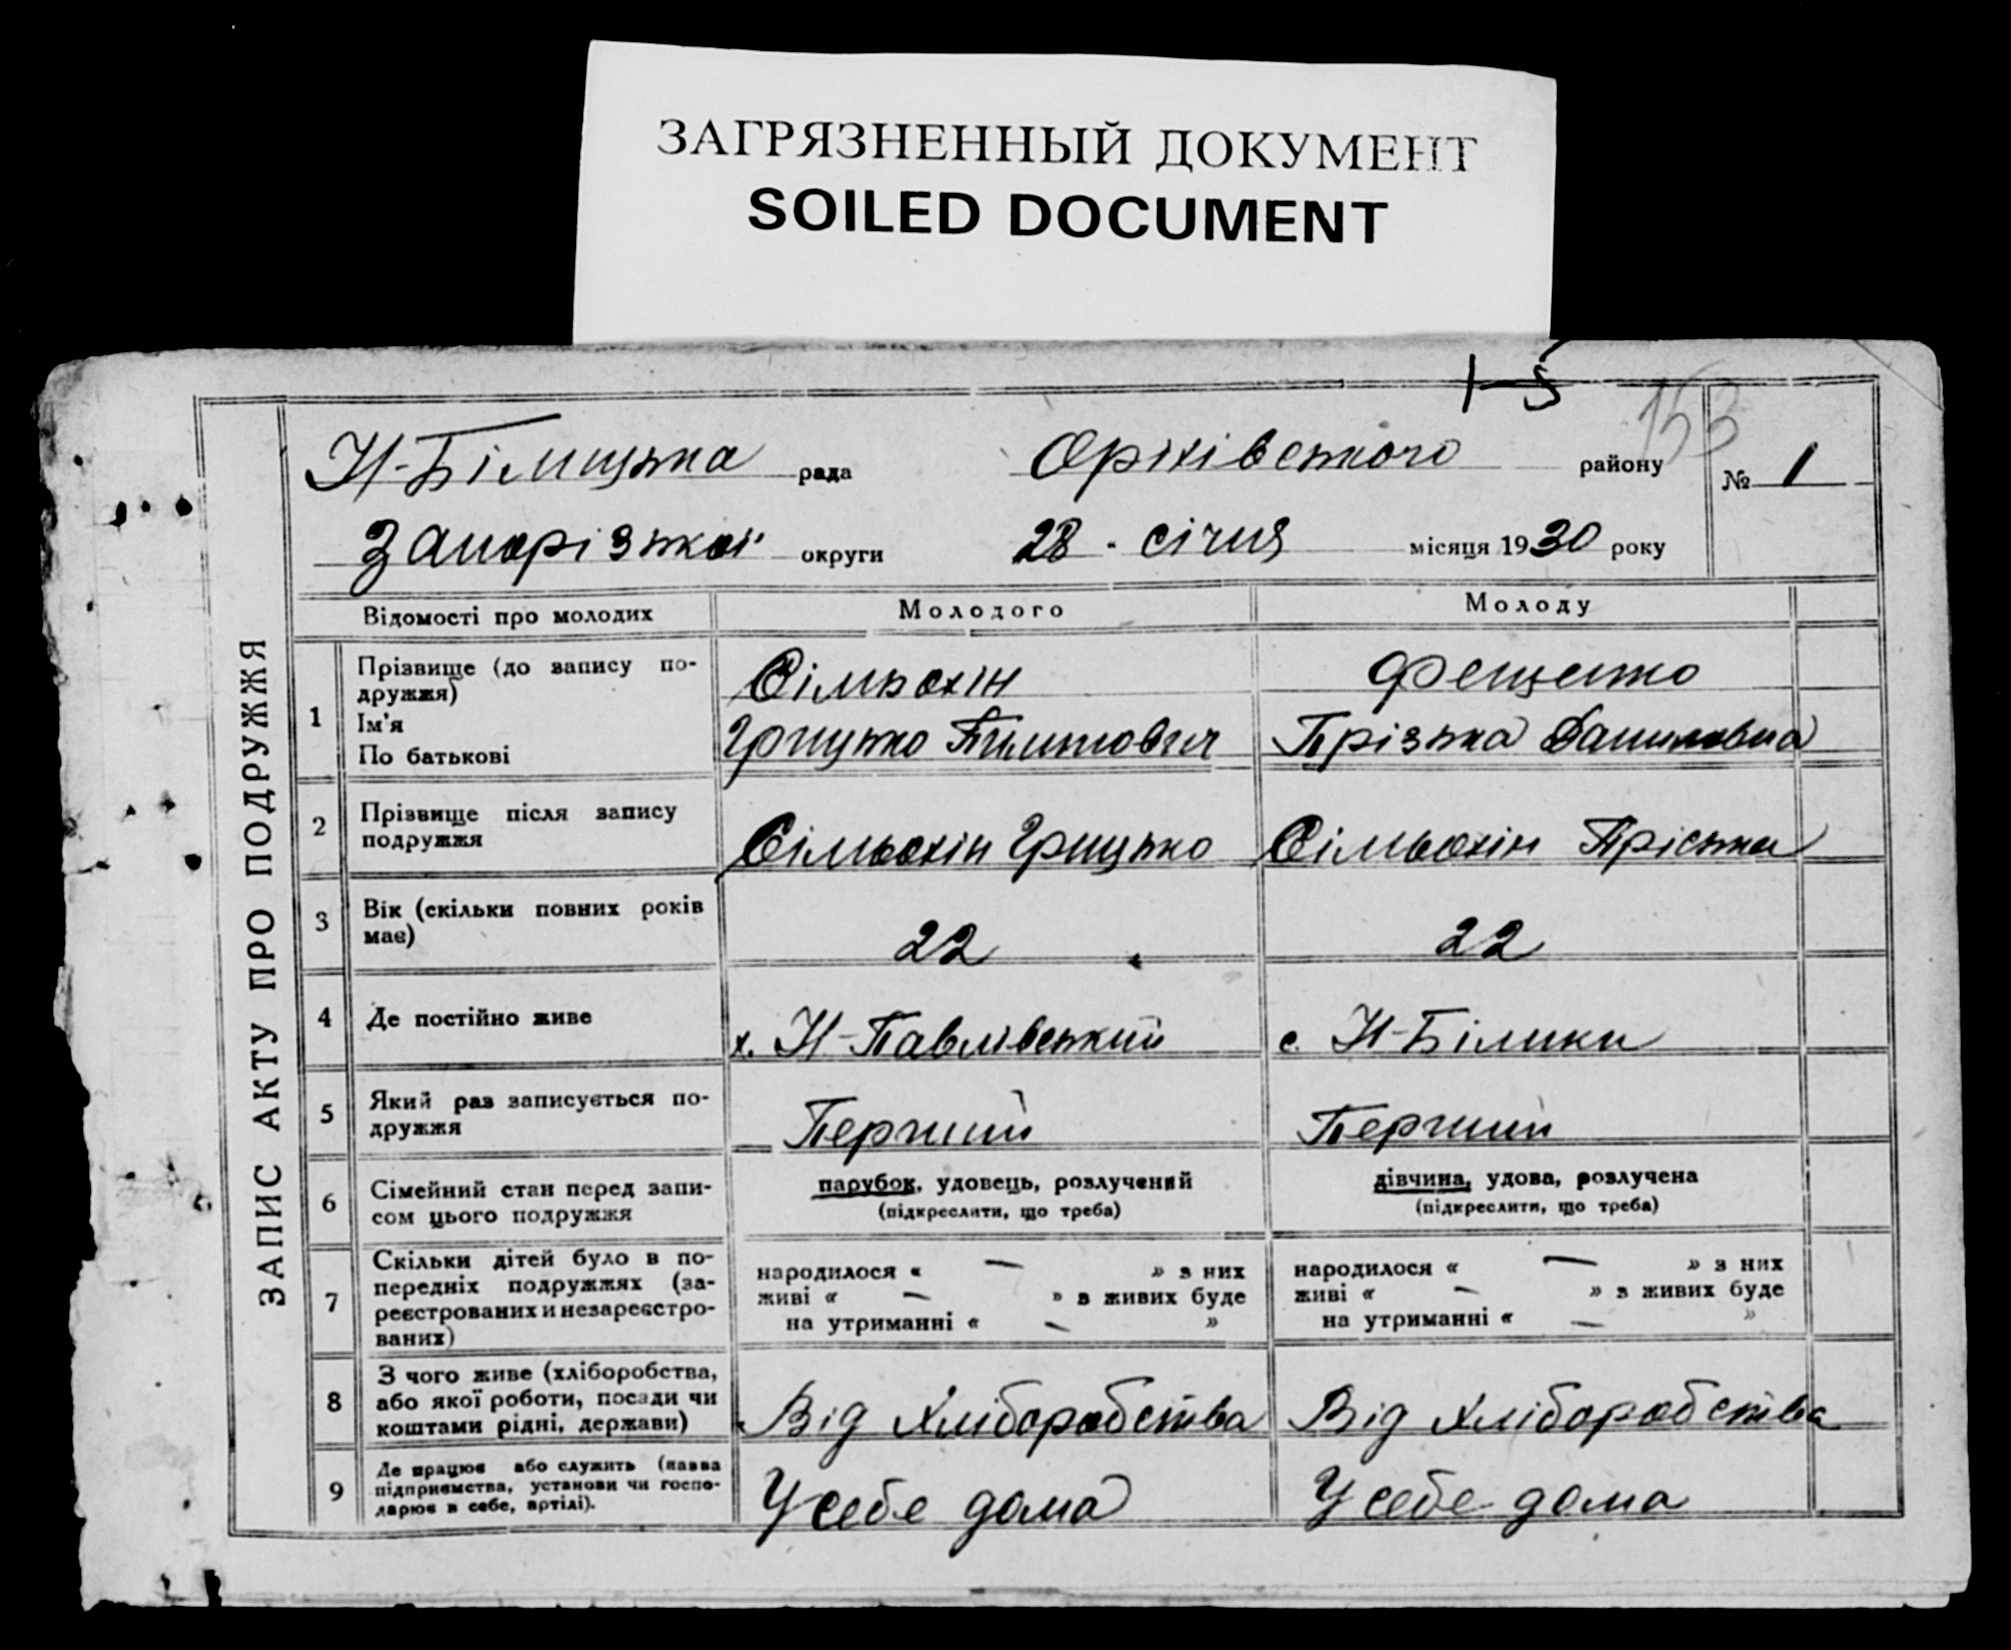 ЗАГРЯЗНЕННЫЙ ДОКУМЕНТ
SOILED DOCUMENT
1-5
153
ЗАПИС АКТУ ПРО ПОДРУЖЖЯ
Н-Білицька рада Оріхівського району № 1
Запорізької округи 28 · січня місяця 1930 року
Відомості про молодих Молодого Молоду
1 Прізвище (до запису по-
дружжя) Сільохін Фещенко
Ім'я
По батькові Грицько Пилипович Прізька Даниловна
2 Прізвище після запису
подружжя Сільохін Грицько Сільохін Пріська
3 Вік (скільки повних років
має) 22 22
4 Де постійно живе х. Н-Павлівський с. Н-Білики
5 Який раз записується по-
дружжя Перший Перший
6 Сімейний стан перед запи-
сом цього подружжя
парубок, удовець, розлучений
(підкреслити, що треба)
дівчина, удова, розлучена
(підкреслити, що треба)
7 Скільки дітей було в по-
передніх подружжях (за-
реєстрованих и незареєстро-
ваних)
народилося « — » з них
живі « — » в живих буде
на утриманні « — »
народилося « — » з них
живі « — » з живих буде
на утриманні « — »
8 З чого живе (хліборобства,
або якої роботи, посади чи
коштами рідні, держави) Від Хліборобства Від Хліборобства
9 Де працює або служить (назва
підприємства, установи чи госпо-
дарює в себе, артілі). У себе дома У себе дома